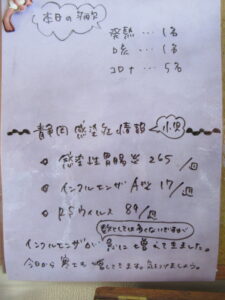 本日の病欠
発熱… 1名
咳… 1名
コロナ… 5名
静岡感染症情報 小児
感染性胃腸炎 265/週
インフルエンザA型 17/週
RSウイルス 89/週
数としては多くないですが
インフルエンザが 急に増えてきました。
今日から寒さも増してきます。気をつけましょう。